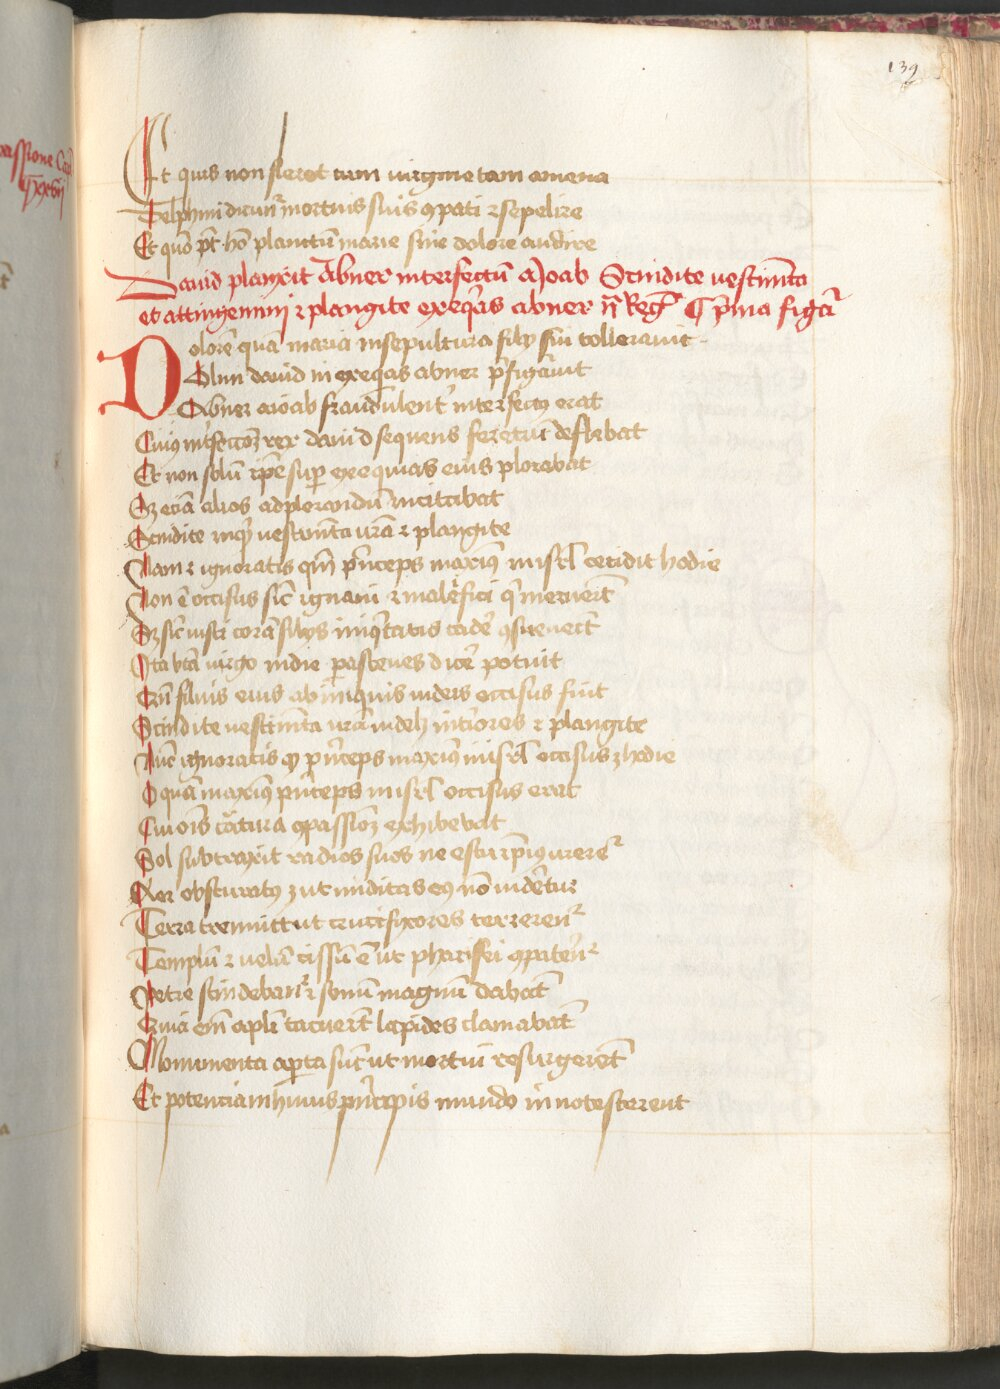 139
passione Cap
Et quis non fleret cum virgine tam amena
Delphini dicunt̉ mortuis suis ↄpati ⁊ sepelire
Et quō pt̄ hō planctum marie sine dolore audire
Dauid planxit Abner interfectū a Joab Scindite vestimēta
et attingemini ⁊ plangite exeq̄as abner ii Reg̃ ¶ p̄ma figȧ
Dolorē quā maria in sepultura filij sui tollerauit
Olim dauid in exequias abner p̄figauit
Abner a ioab fraudulent̉ int̉fectꝰ erat
Cuiꝰ int̉fectoꝫ rex dauid sequens feretrū deflebat
Et non solū ip̄e sup̱ exequias eius plorabat
Sꝫ etiā alios ad plorandū incitabat
Scindite inq̇ vestimēta vr̄a ⁊ plangite
Nam ⁊ ignoratis qm̄ p̄nceps maximꝰ in isrl̄ cecidit hodie
Non ē occisus sic̄ ignaui ⁊ malefici q̇ meruerūt
Sꝫ sic̄ iusti corā filijs iniq̇tatis cadē ↄsueuerūt
Ita btā virgo in die parasceues dicē potuit
Qn̄ filius eius ab iniquis iudeis occisus fuit
Scindite vestimēta vr̄a videlꝫ int̉iores ⁊ plangite
Nūc ignoratis ꝙ p̄nceps maximꝰ in isrl̄ occisus ꝫ hodie
O quā maximꝰ p̄nceps in isrl̄ occisus erat
Cui oīs c̄atura ↄpassioꝫ exhibebat
Sol subtraxit radios suos ne estu xp̄m vrereȓ
Aer obscuratꝰ ꝫ ut nuditas eiꝰ nō viderētur
Terra tremuit ut crucifixores terrerenȓ
Templū ⁊ velū scissū ē ut pharisei ↄpaterenȓ
Petre scindebant̉ ⁊ sonū magnū dabāt
Quia em̄ apl̄i tacuerūt lapides clamabāt
Monumenta aperta sūt ut mortui resurgerēt
Et potentiam huius principis mundo innotescerent